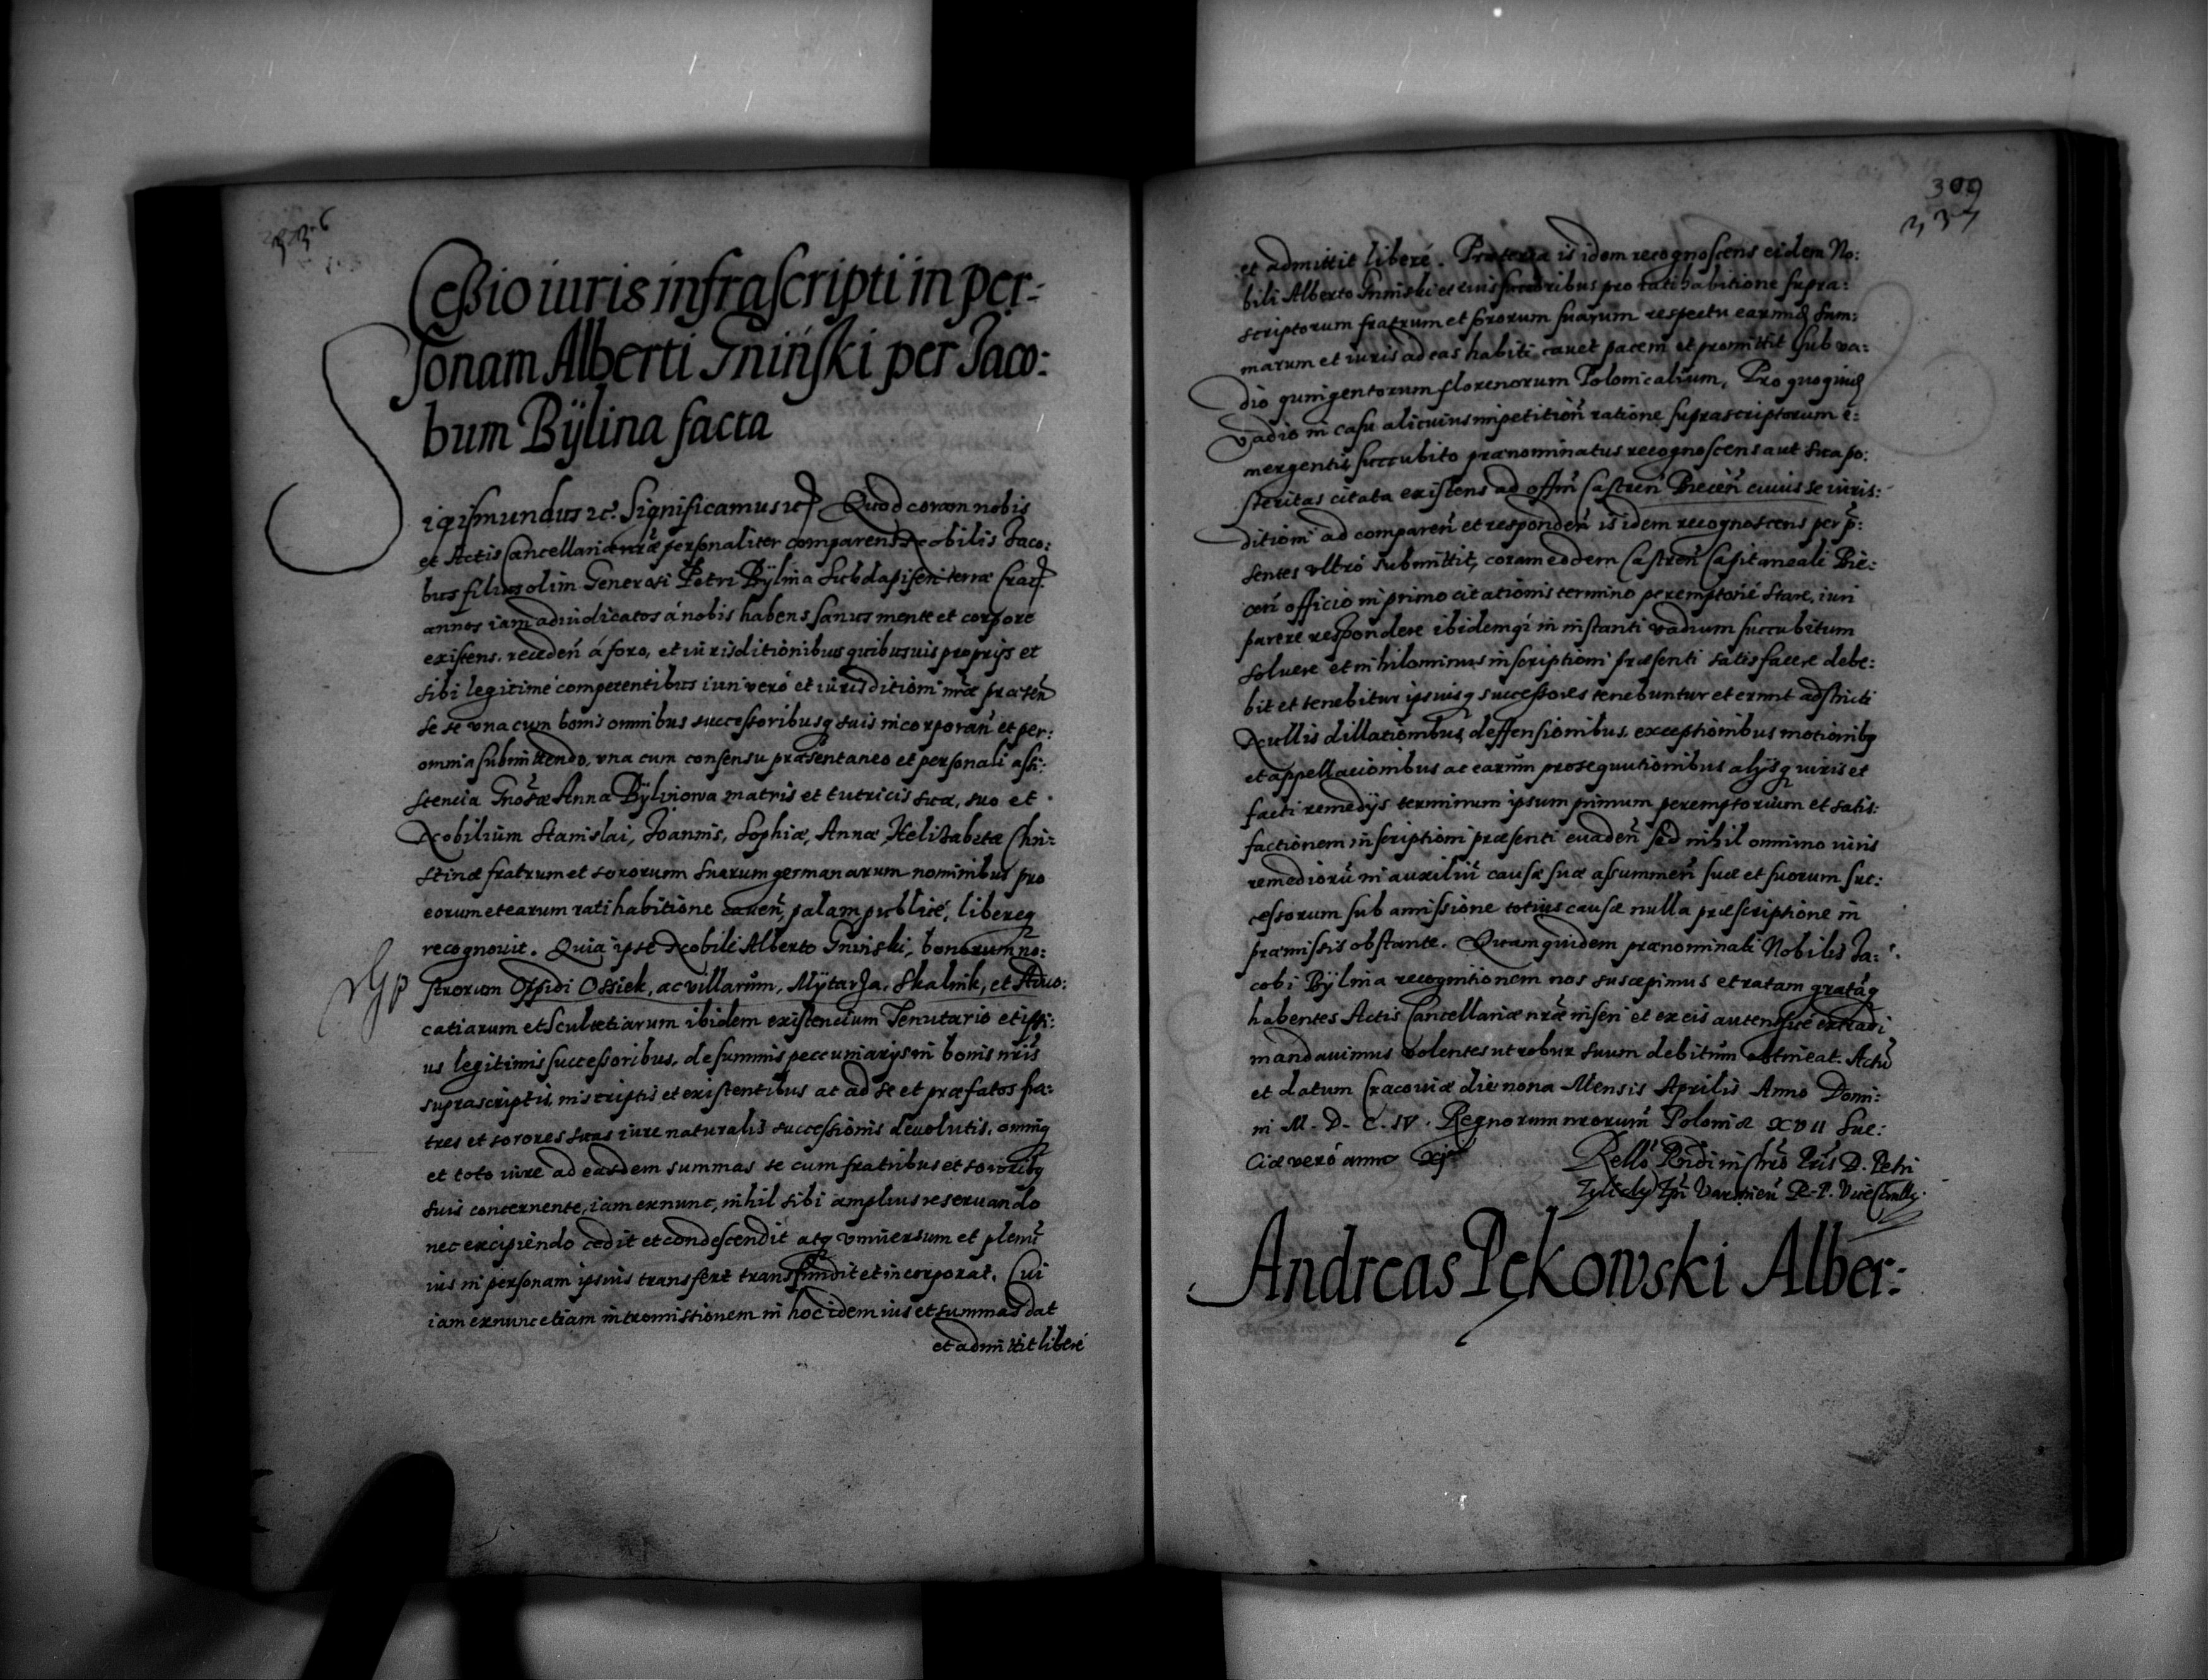 336
Cessio iuris infrascripti in per:
sonam Alberti Gniński per Jaco:
bum Bÿlina facta
Sigismundus etc. Significamus etc. Quod coram nobis
et Actis Cancellariæ nr̃æ personaliter comparens Nobilis Jaco:
bus filius olim Generosi Petri Bÿlina Subdapiferi terræ Crac.
annos iam adiudicatos á nobis habens sanus mente et corpore
existens, receden̄ á foro, et iurisditionibus quibusuis proprijs et
sibi legitimé competentibus iuri veró et iurisditioni nr̃æ præsen̄
se se vna cum bonis omnibus successoribusq suis incorporan̄ et per:
omnia submittendo, vna cum consensu præsentaneo et personali assi:
stencia Gnosæ Anna Bÿlinowa matris et tutricis suæ, suo et
Nobilium Stanislai, Joannis, Sophiæ, Annæ, Helizabetæ Chri:
stinæ fratrum et sororum suarum germanarum nominibus pro
eorum et earum ratihabitione cauen̄, palam, publicé, libereq
recognouit. Quia ipse Nobili Alberto Gninski, bonorum no:
strorum Oppidi Ossiek, ac villarum, Mÿtarza, Skalnik, et Aduo:
catiarum et Scultetiarum ibidem existencium Tenutario et ipsi:
us legitimis successoribus, de summis peccuniarijs in bonis nr̃is
suprascriptis, inscriptis et existentibus ac ad se et præfatos fra:
tres et sorores suas iure naturalis successionis deuolutis, omniq
et toto iure ad easdem summas se cum fratribus et sororibq
suis concernente, iam exnunc, nihil sibi amplius reseruando
nec excipiendo cedit et condescendit atq vniuersum et plenū
ius in personam ipsius transfert transfundit et incorporat. Cui
iam exnunc etiam intromissionem in hoc idem ius et summas dat
et admittit liberé
309
337
et admittit liberé. Præterea is idem recognoscens eidem No:
bili Alberto Gninski et eius succoribus pro ratihabitione supra:
scriptorum fratrum et sororum suarum respectu earund sum:
marum et iuris ad eas habiti cauet pacem et promittit sub va:
dio quingentorum florenorum Polonicalium, Pro quoquid
vadio in casu alicuius impetition̄ ratione suprascriptorum e:
mergentis succubito prænominatus recognoscens aut sua po:
steritas citata existens ad offm̄ Castren̄ Biecen̄ cuius se iuris:
ditioni ad comparen̄ et responden̄ is idem recognoscens per p̄:
sentes vltró submittit, coram eodem Castren̄ Capitaneali Bie:
cen̄ officio in primo citationis termino peremptorié stare, iuri
parere respondere ibidemq́ in instanti vadium succubitum
soluere et nihilominus inscriptioni præsenti satisfacere debe:
bit et tenebitur ipsiusq successores tenebuntur et erunt adstricti
Nullis dillationibus, deffensionibus, exceptionibus motionibq
et appellacionibus ac earum prosequutionibus alijsq iuris et
facti remedijs terminum ipsum primum peremptorium et satis:
factionem inscriptioni præsenti euaden̄ sed nihil omnino iuris
remediorū in auxiliū causæ suæ assummen̄ suæ et suorum suc:
cessorum sub amissione totius causæ nulla præscriptione in
præmissis obstante. Quam quidem prænominati Nobilis Ja:
cobi Bÿlina recognitionem nos suscepimus et ratam gratáq
habentes Actis Cancellariæ nr̃æ inseri et ex eis autenticé extradi
mandauimus volentes ut robur suum debitum obtineat. Actū
et datum Cracouiæ die nona Mensis Aprilis Anno Domi:
ni M. D. C. IV. Regnorum nrorum̄ Poloniæ XVII Sue:
ciæ veró anno XI
Rello Rndi in Chro Pris D. Petri
Tylicky Epī Varmien̄ R. P. Vicecanclly.
Andreas Pękowski Alber: